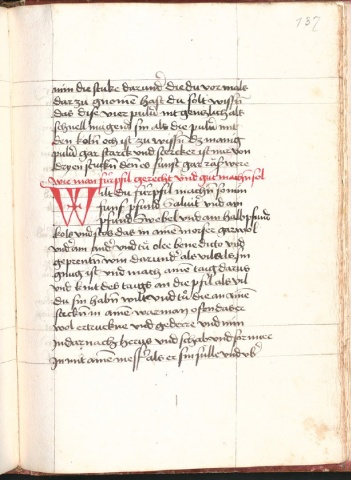 137
nim die stuke darunder die du vor mals
dar zu gnomen hast du solt wissen
das dise vier puluer nit gensslich als
schnell mugend sin als die puluer mit
den koln och ist zu wissen dz manig
puluer gar starck und stercker ist ma von
dryen stucken denn es sunst gar räss were
wie man fürpfil gerecht und gut machen sol
Wilt du fürpfil machen so nim
fünf pfund salniter und ain
pfund swebel und ain halb pfund
kols und stos das in aime morser gar wol
under ain ander und tů olee benedicto und
geprenten win darunder als vil als sin
gnug ist und mach ainen taig darus
und knet des taigs an die pfil als vil
du sin haben wilt und tů die an aine
stecken in aine warmen ofen das er
wol ertruckne und gederre und nim
In dar nach herus und schab und formier
In mit ainem messer als er sin sulle und ob